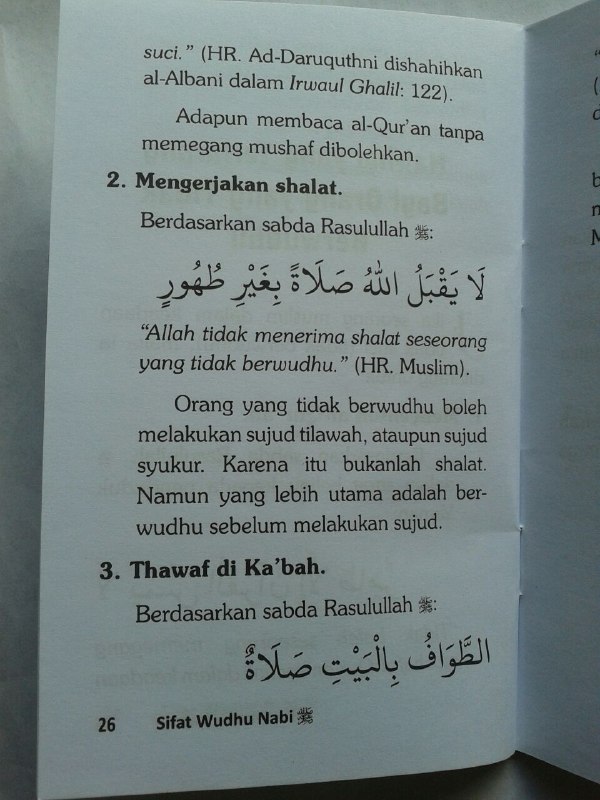 suci." (HR. Ad-Daruquthni dishahihkan
al-Albani dalam Irwaul Ghalil: 122).
Adapun membaca al-Qur'an tanpa
memegang mushaf dibolehkan.
2. Mengerjakan shalat.
Berdasarkan sabda Rasulullah ﷺ:
لَا يَقْبَلُ اللهُ صَلَاةً بِغَيْرِ طُهُورٍ
"Allah tidak menerima shalat seseorang
yang tidak berwudhu." (HR. Muslim).
Orang yang tidak berwudhu boleh
melakukan sujud tilawah, ataupun sujud
syukur. Karena itu bukanlah shalat.
Namun yang lebih utama adalah ber-
wudhu sebelum melakukan sujud.
3. Thawaf di Ka'bah.
Berdasarkan sabda Rasulullah ﷺ:
الطَّوَافُ بِالْبَيْتِ صَلَاةٌ
26 Sifat Wudhu Nabi ﷺ